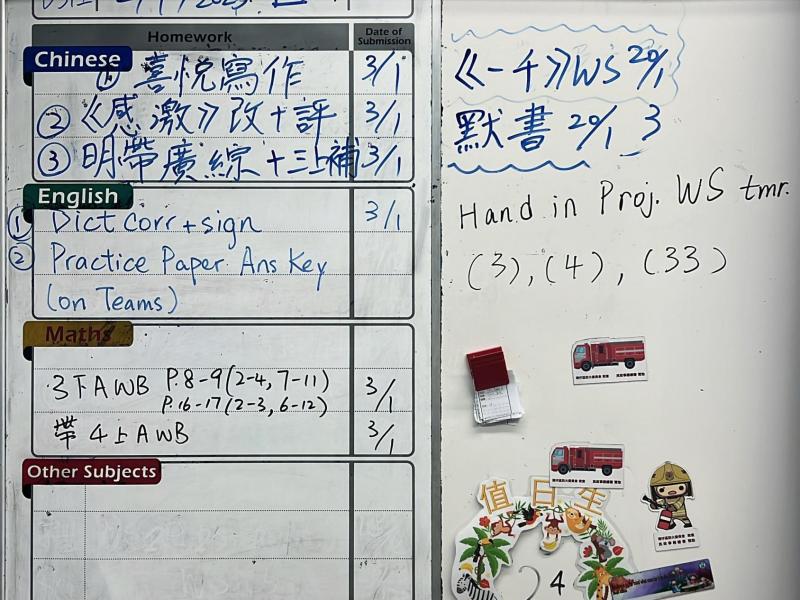 Homework
Date of Submission
Chinese
① 喜悅寫作 3/1
② 《感激》改+評 3/1
③ 明帶廣綜+三上補 3/1
English
① Dict corr + sign 3/1
② Practice Paper Ans Key
(on Teams)
Maths
3下AWB P.8-9(2-4, 7-11) 3/1
P.16-17(2-3, 6-12)
帶4上AWB 3/1
Other Subjects
《一千》WS 20/1
默書 20/1 3
Hand in Proj. WS tmr.
(3), (4), (33)
值日生
4